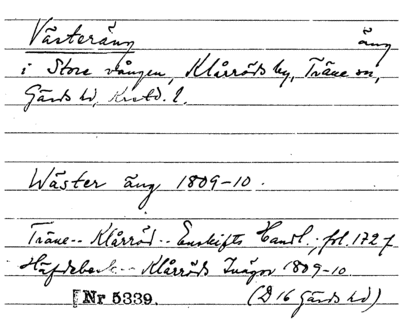 Västeräng äng
i Store vången, Klårröds by, Träne sn,
Gärds hd, Krstd. l.
Wäster äng 1809-10.
Träne-- Klårröd-- Enskifts Handl.; fol. 172 f
Häfdebesk.-- Klårröds Inägor 1809-10
Nr 5339. (D 16 Gärds hd)